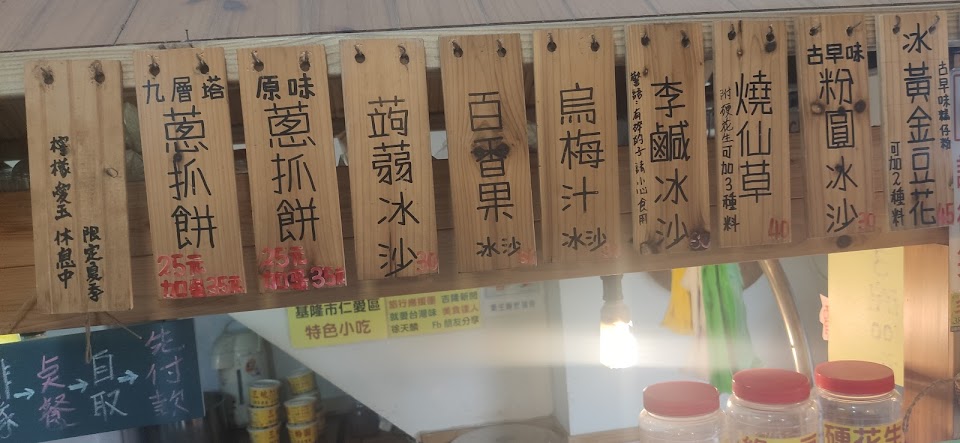 檸檬愛玉 休息中
限定夏季
九層塔
蔥抓餅
25元
加蛋35元
原味
蔥抓餅
25元
加蛋35元
蒟蒻冰沙
30
百香果
冰沙
烏梅汁
冰沙
李鹹冰沙
30
燒仙草
硬花生可加3種料
40
古早味
粉圓冰沙
30
冰黃金豆花
可加2種料
45
基隆市仁愛區
特色小吃
先付款
自取
桌餐
→
硬花生